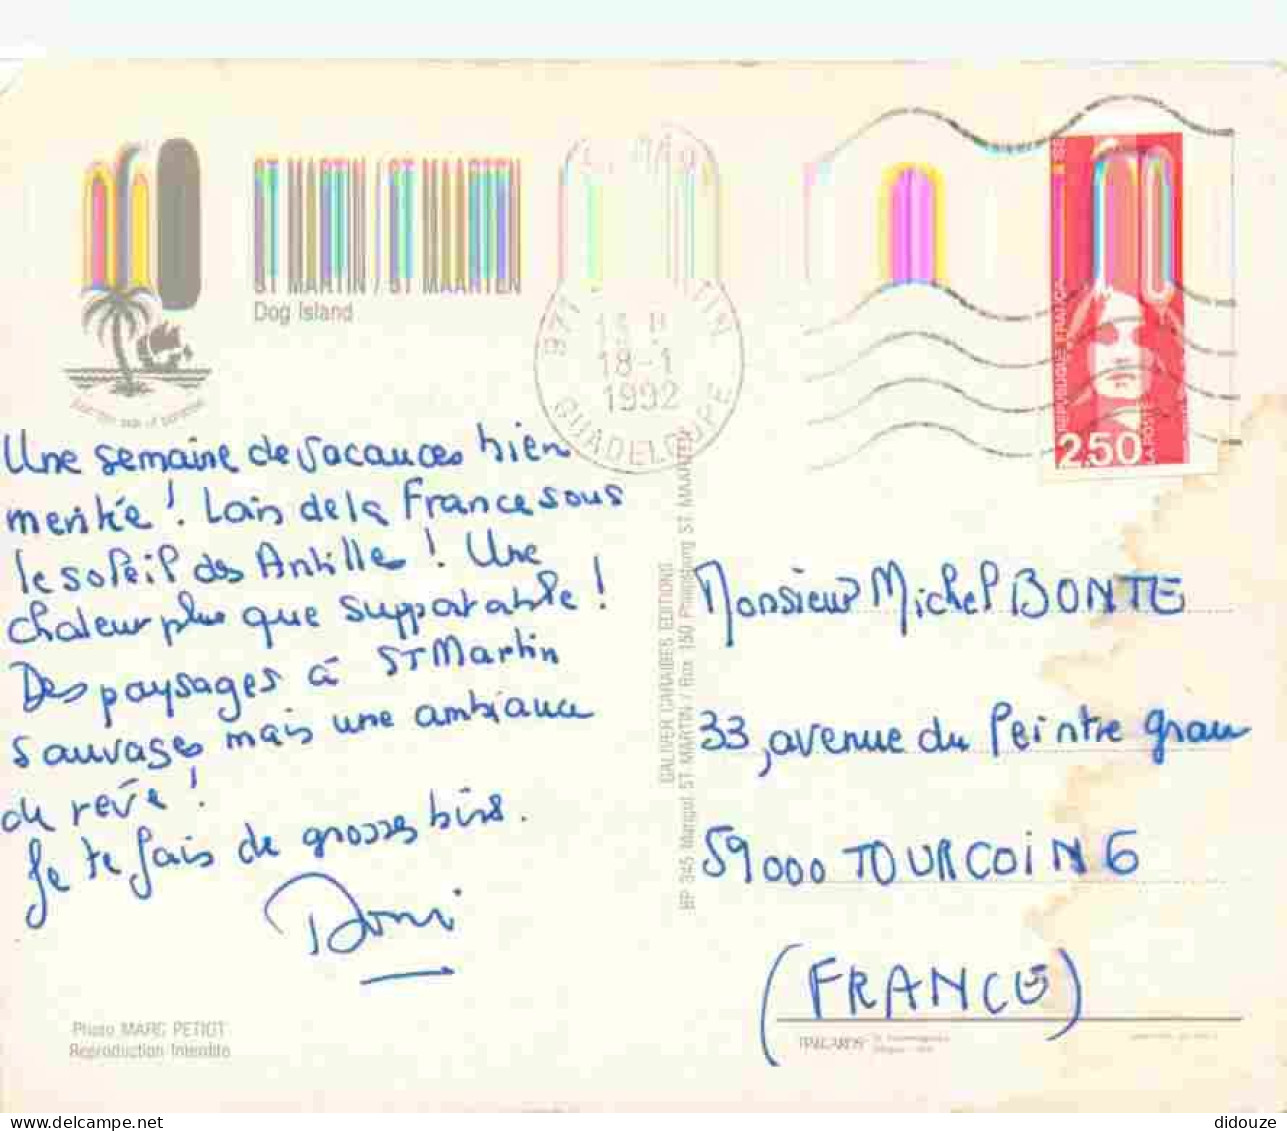 ST MARTIN / ST MAARTEN
Dog Island
971 ST MARTIN
18-1
1992
GUADELOUPE
REPUBLIQUE FRANÇAISE
2,50
LA POSTE
Une semaine de vacances bien
meritée! Loin de la France sous
le soleil des Antilles! Une
chaleur plus que supportable!
Des paysages à ST Martin
sauvages mais une ambiance
de rêve!
Je te fais de grosses bises.
GALIVER CARAIBES EDITIONS
BP 345 Marigot ST MARTIN / Box 150 Philipsburg ST MAARTEN
Monsieur Michel BONTE
33, avenue du Peintre Grau
59000 TOURCOING
(FRANCE)
Photo MARC PETIOT
Reproduction Interdite
didouze